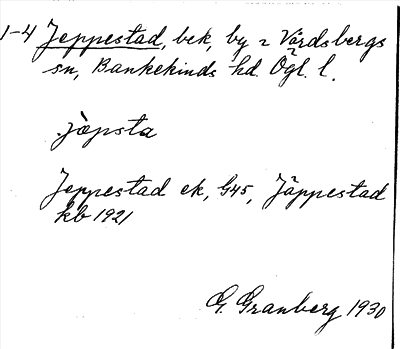 1-4 Jeppestad, bek, by i Vårdsbergs
sn, Bankekinds hd. Ögl. l.
jæpsta
Jeppestad ek, G45, Jäppestad
kb 1921
G. Granberg 1930